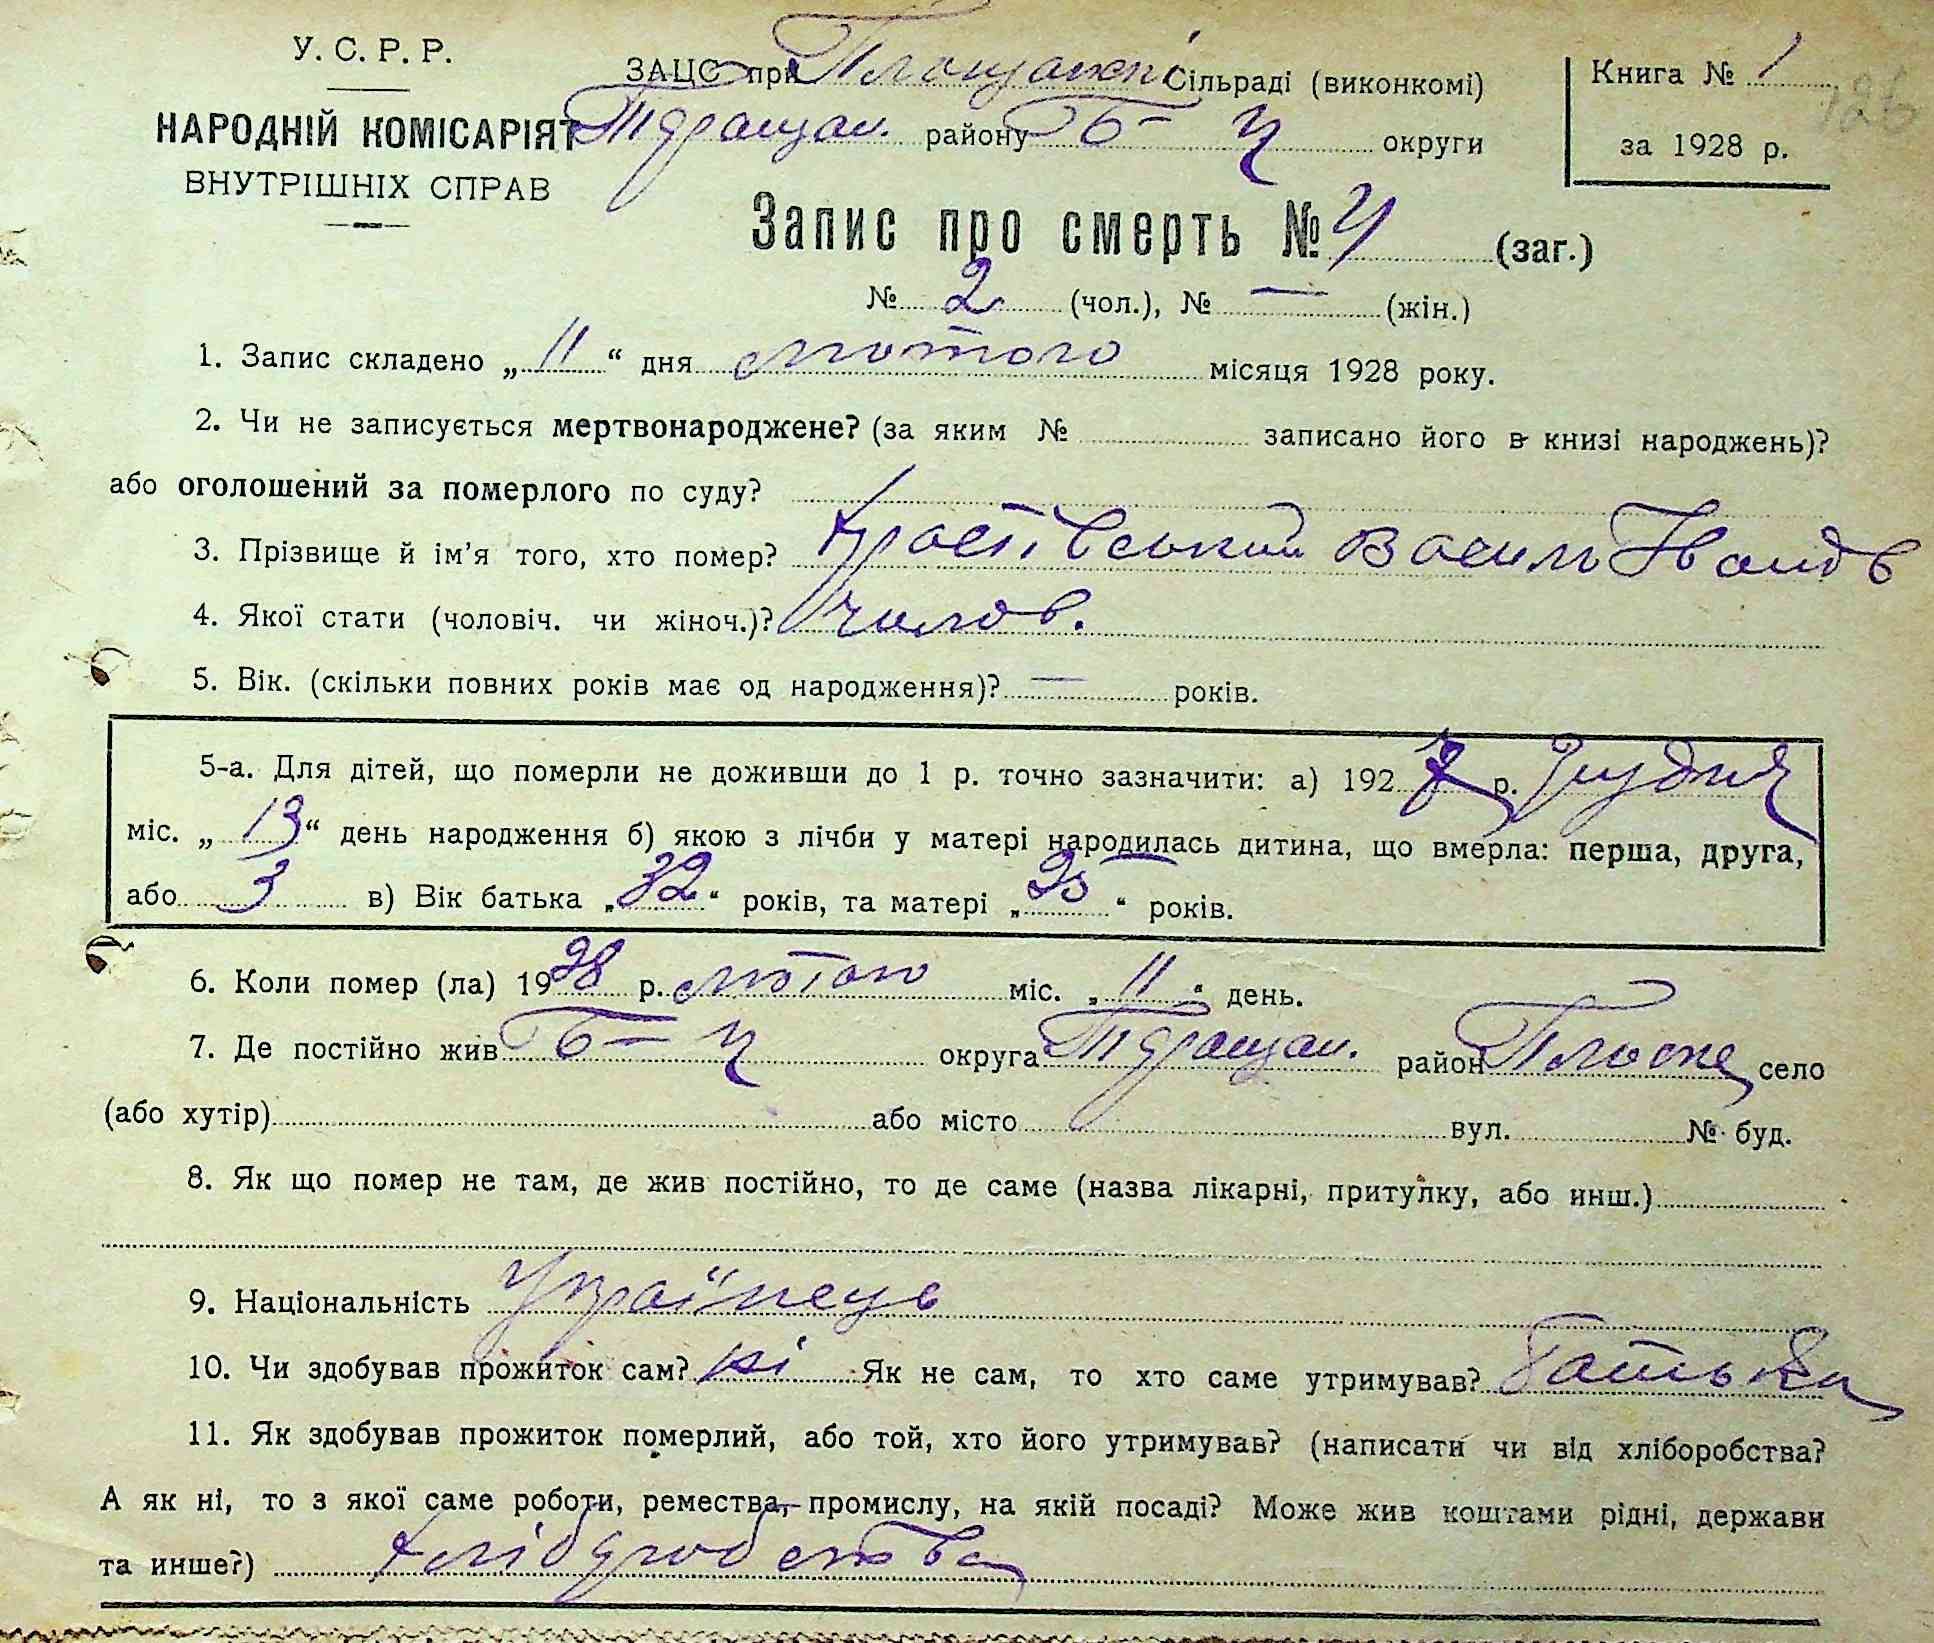 У. С. Р. Р.
НАРОДНІЙ КОМІСАРІЯТ
ВНУТРІШНІХ СПРАВ
ЗАЦС при Площанскі Сільраді (виконкомі)
Таращан. району Б - Ц округи
Книга № 1
за 1928 р.
126
Запис про смерть № 4 (заг.)
№ 2 (чол.), № — (жін.)
1. Запис складено „ 11 “ дня лютого місяця 1928 року.
2. Чи не записується мертвонароджене? (за яким № записано його в книзі народжень)?
або оголошений за померлого по суду?
3. Прізвище й ім’я того, хто помер? Василь Іванов
4. Якої стати (чоловіч. чи жіноч.)? чолов.
5. Вік. (скільки повних років має од народження)? — років.
5-а. Для дітей, що померли не доживши до 1 р. точно зазначити: а) 1927 р. Грудня
міс. „ 13 “ день народження б) якою з лічби у матері народилась дитина, що вмерла: перша, друга,
або 3 в) Вік батька „ 32 “ років, та матері „ 25 “ років.
6. Коли помер (ла) 1928 р. лютого міс. „ 11 “ день.
7. Де постійно жив Б - Ц округа Таращан. район Плоске село
(або хутір) або місто вул. № буд.
8. Як що помер не там, де жив постійно, то де саме (назва лікарні, притулку, або инш.)
9. Національність Українець
10. Чи здобував прожиток сам? ні Як не сам, то хто саме утримував? Батько
11. Як здобував прожиток померлий, або той, хто його утримував? (написати чи від хліборобства?
А як ні, то з якої саме роботи, ремества, промислу, на якій посаді? Може жив коштами рідні, держави
та инше?) хліборобства